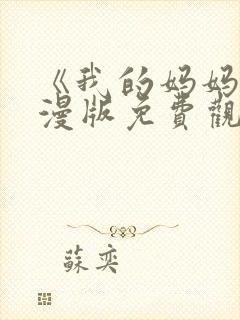 《我的妈妈
漫版免費觀
蘇奕